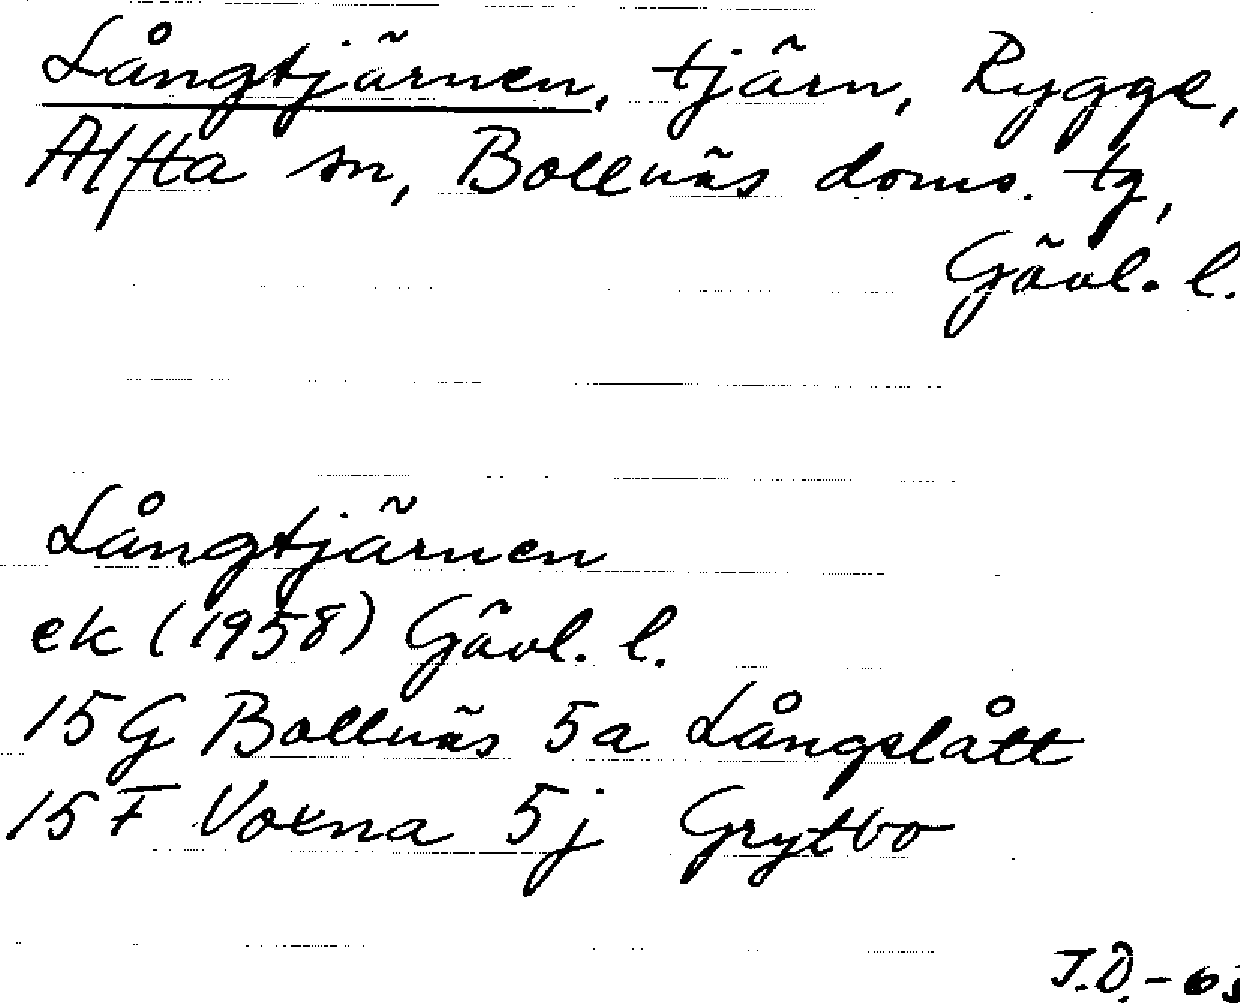 Långtjärnen, tjärn, Rygge,
Alfta sn, Bollnäs doms. tg,
Gävl. l.
Långtjärnen
ek (1958) Gävl. l.
15G Bollnäs 5a Långslått
15F Voxna 5j Grytbo